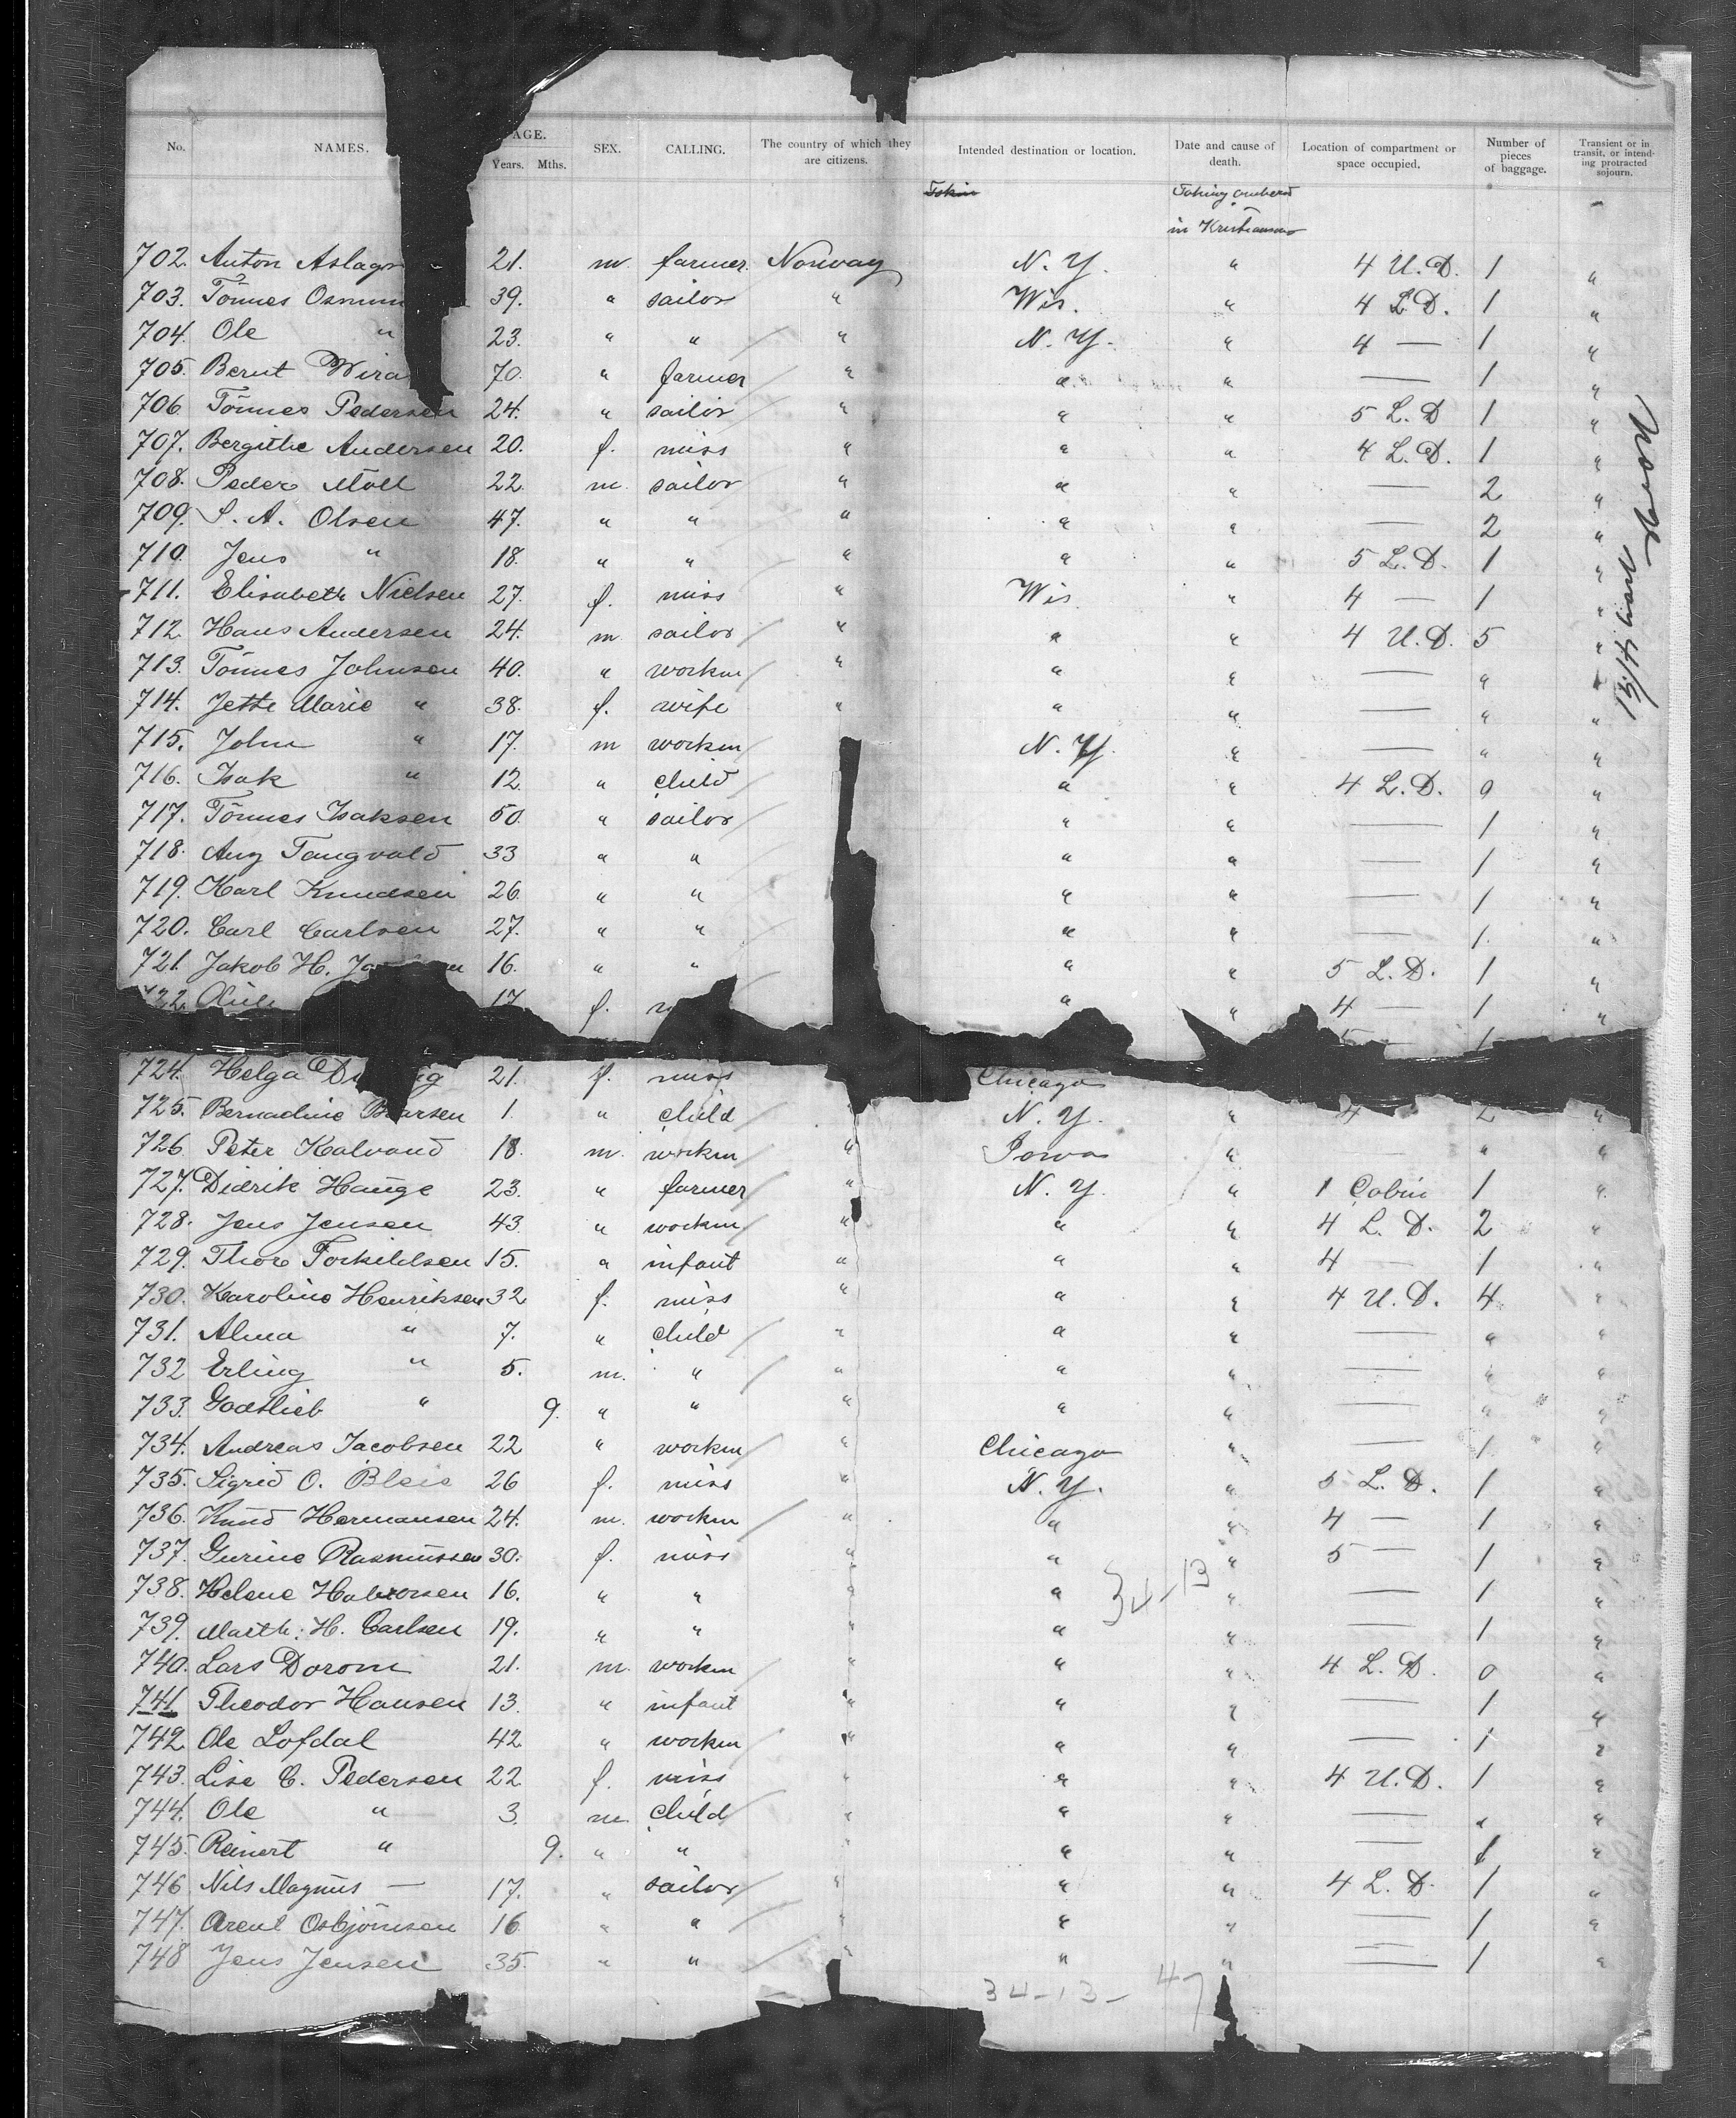 No. NAMES. AGE. Years. Mths. SEX. CALLING. The country of which they are citizens. Intended destination or location. Date and cause of death. Location of compartment or space occupied. Number of pieces of baggage. Transient or in transit, or intending protracted sojourn.
in
702. Anton 21. m. farmer. Norway N. Y. " 4 U. D. 1 "
703. Tönnes 39. " sailor " Wis. " 4 L. D. 1 "
704. Ole " 23. " " " N. Y. " 4 — 1 "
705. Bernt 70. " farmer " " " — 1 "
706. Tönnes Pedersen 24. " sailor " " " 5 L. D 1 "
707. Bergithe Andersen 20. f. miss " " " 4 L. D. 1 "
708. Peder Möll 22. m. sailor " " " — 2 "
709. S. A. Olsen 47. " " " " " — 2 "
710. Jens " 18. " " " " " 5 L. D. 1 "
711. Elisabeth Nielsen 27. f. miss " Wis. " 4 — 1 "
712. Hans Andersen 24. m. sailor " " " 4 U. D. 5 "
713. Tönnes Johnsen 40. " workm " " " — " "
714. Jette Marie " 38. f. wife " " " — " "
715. John " 17. m workm N. Y. " — " "
716. Isak " 12. " child " " 4 L. D. 0 "
717. Tönnes Isaksen 50. " sailor " " — 1 "
718. Aug Tangvald 33 " " " " — 1 "
719. Karl Knudsen 26. " " " " — 1 "
720. Carl Carlsen 27. " " " " — 1. "
721. Jakob H. 16. " " " " 5 L. D. 1 "
722. 17 f. " " 4 — 1 "
724. Helga 21. f. miss Chicago
725. Bernadine 1. " child " N. Y. " 4 2 "
726. Peter Kalvand 18. m. workm " Iowa " — " "
727. Didrik Hauge 23. " farmer " N. Y. " 1 Cabin 1 "
728. Jens Jensen 43. " workm " " " 4 L. D. 2 "
729. Thore Torkildsen 15. " infant " " " 4 — 1 "
730. Karoline Henriksen 32 f. miss " " " 4 U. D. 4 "
731. Alma " 7. " child " " " — " "
732 Erling " 5. m. " " " " — " "
733. Godtlieb " 9. " " " " " — " "
734. Andreas Jacobsen 22 " workm " Chicago " — 1. "
735. Sigrid O. Bleie 26 f. miss " N. Y. " 5 L. D. 1 "
736. Knud Hermansen 24. m. workm " " " 4 — 1 "
737. Gurine Rasmussen 30. f. miss " " " 5 — 1 "
34-13
738. Helene 16. " " " " " — 1 "
739. Marth: H. Carlsen 19. " " " " " — 1 "
740. Lars 21. m. workm " " " 4 L. D. 0 "
741 Theodor Hansen 13. " infant " " " — 1 "
742. Ole Lofdal 42. " workm " " " — 1 "
743. Lise C. Pedersen 22 f. miss " " " 4 U. D. 1 "
744. Ole " 3. m child " " " — " "
745. Reinert " 9. " " " " " — 1 "
746 Nils Magnus — 17. " sailor " " " 4 L. D. 1 "
747. Arent Osbjörnsen 16 " " " " " — 1 "
748 Jens Jensen 35. " " " " " — 1 "
34-13- 47